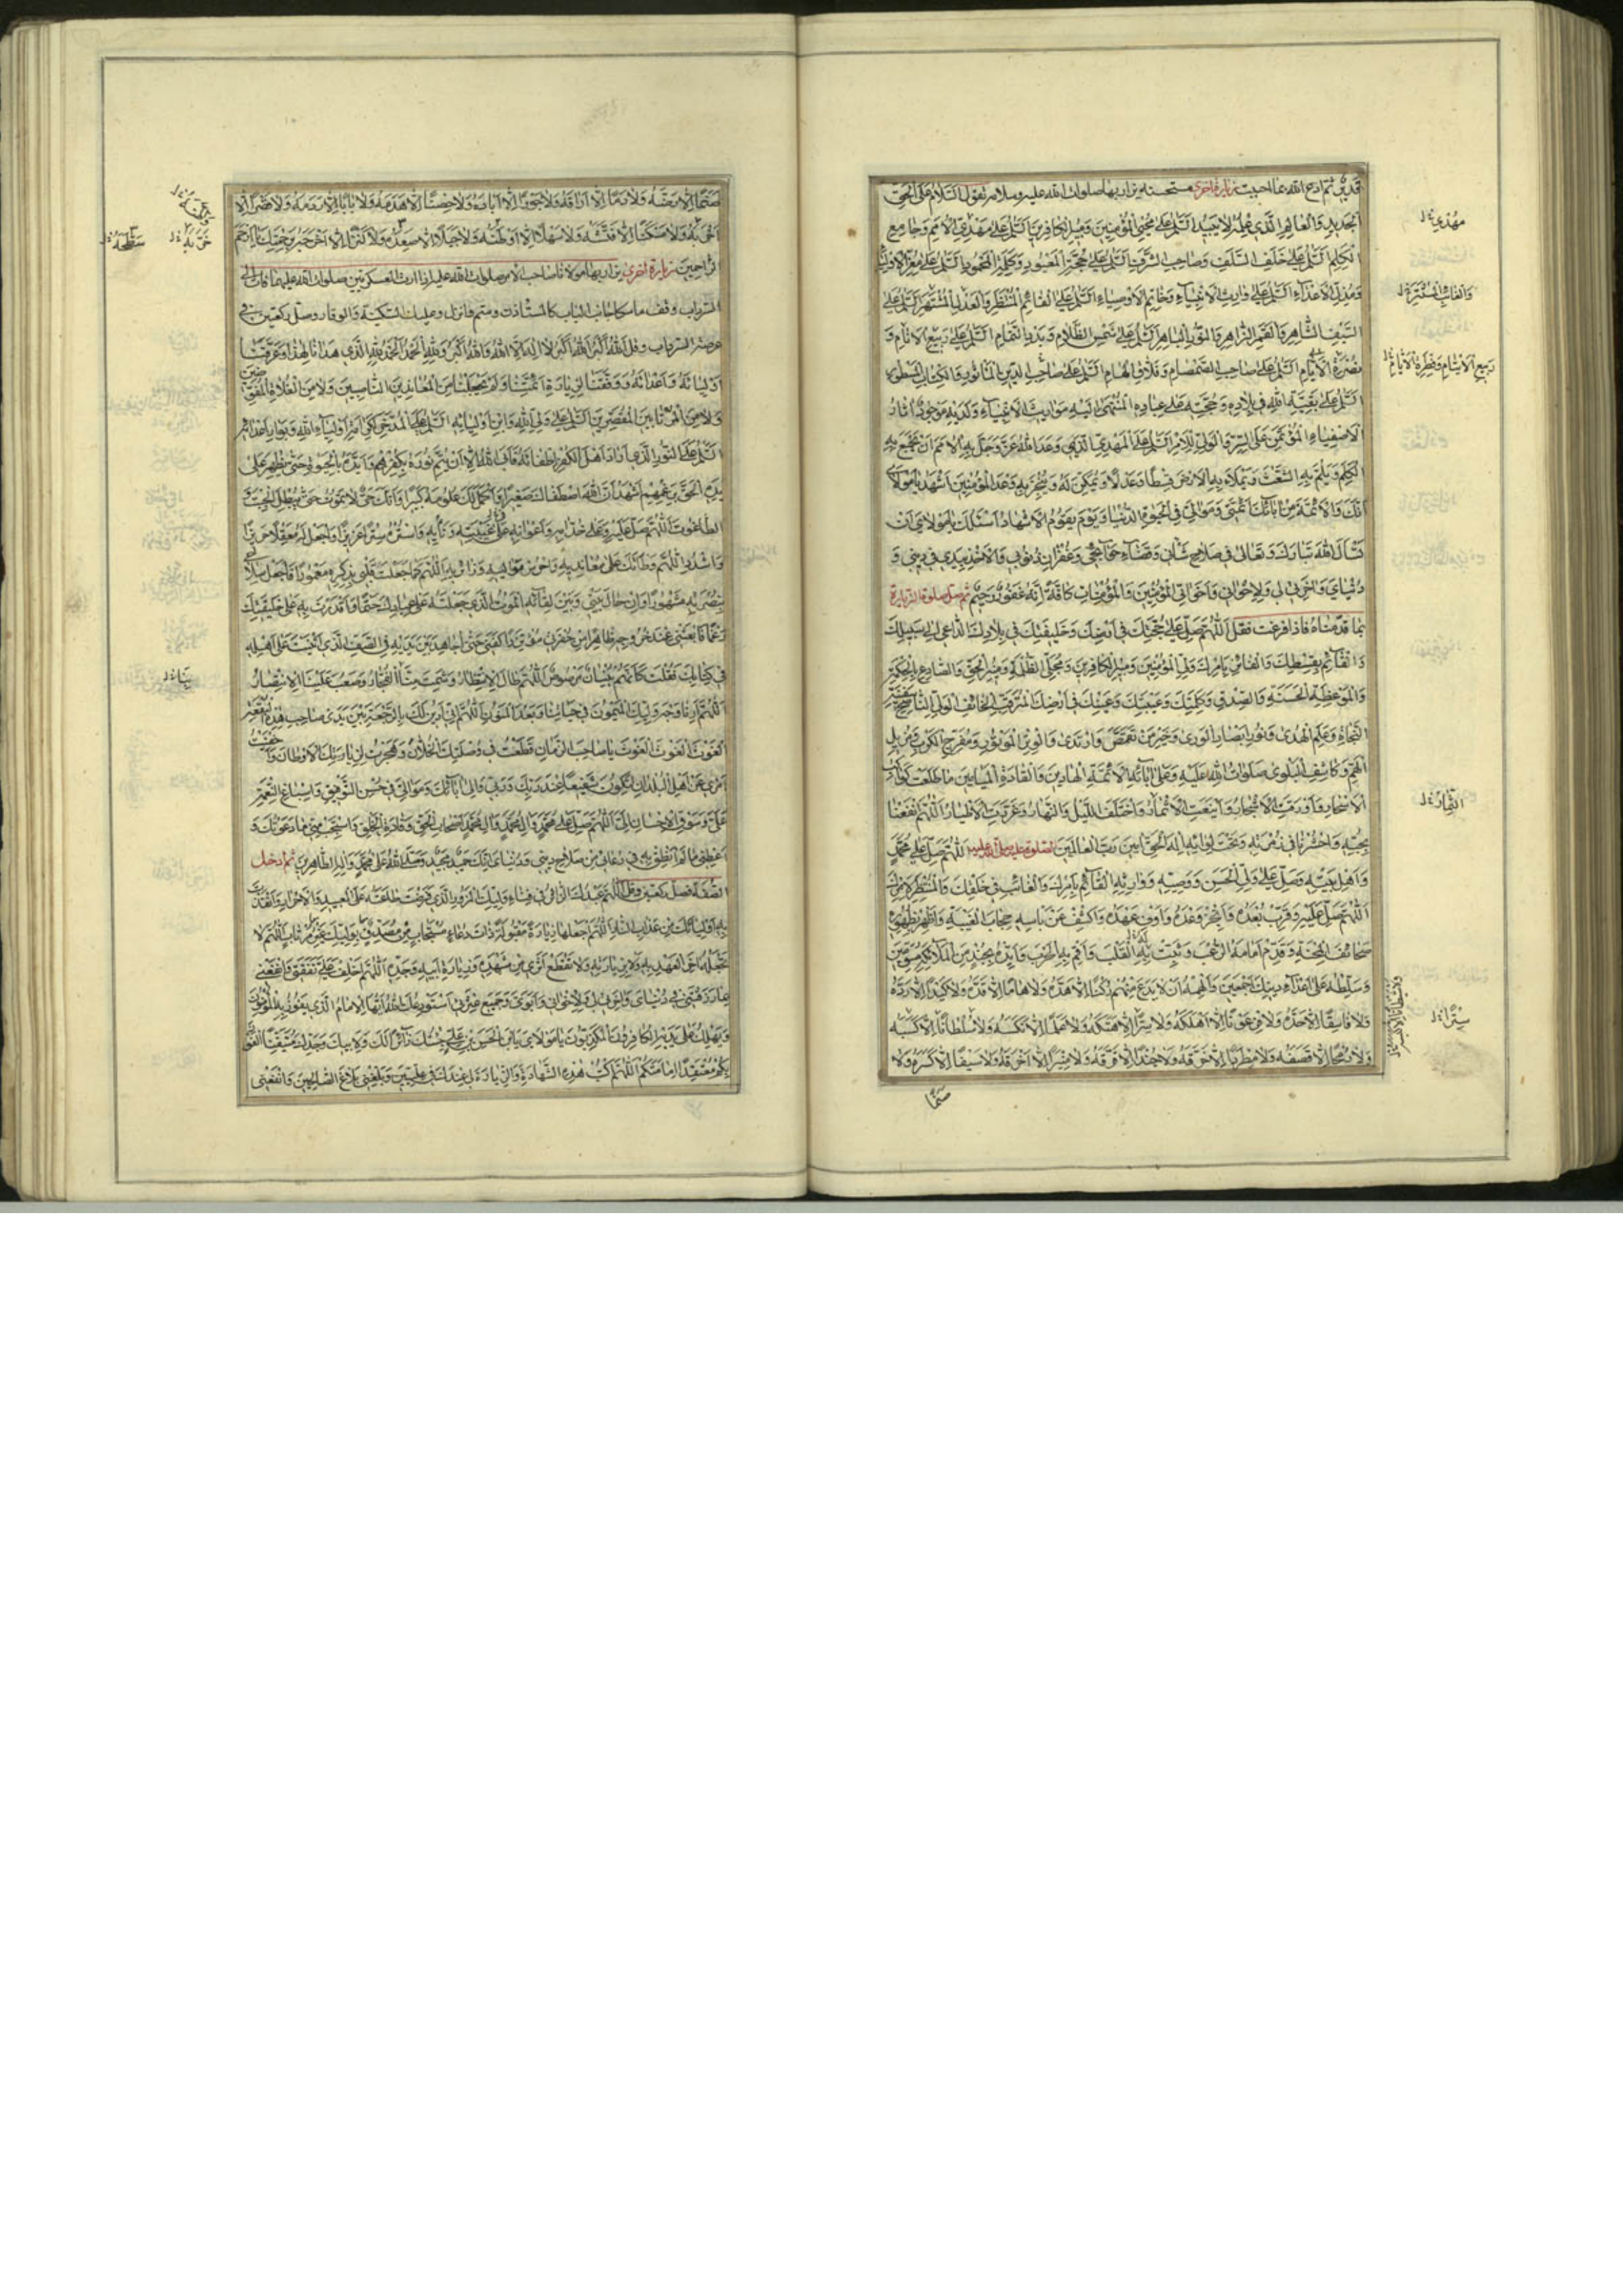 قدير ثم ادع الله بما احببت زيارة اخرى مستحسنة يزار بها صلوات الله عليه وسلامه تقول السلام على الحق
الجديد والعالم الذي علمه لا يبيد السلام على محيي المؤمنين ومبير الكافرين السلام على مهدي الامم وجامع
الكلم السلام على خلف السلف وصاحب الشرف السلام على حجة المعبود وكلمة المحمود السلام على معز الاولياء
ومذل الاعداء السلام على وارث الانبياء وخاتم الاوصياء السلام على القائم المنتظر والعدل المشتهر السلام على
السيف الشاهر والقمر الزاهر والنور الباهر السلام على شمس الظلام وبدر التمام السلام على ربيع الانام و
نضرة الايام السلام على صاحب الصمصام وفلاق الهام السلام على صاحب الدين المأثور والكتاب المسطور
السلام على بقية الله في بلاده وحجته على عباده المنتهى اليه مواريث الانبياء ولديه موجود اثار
الاصفياء المؤتمن على السر والولي للامر السلام على المهدي الذي وعد الله عز وجل به الامم ان يجمع به
الكلم ويلم به الشعث ويملأ به الارض قسطا وعدلا ويمكن له وينجز به وعد المؤمنين اشهد يا مولاي
انك والائمة من آبائك ائمتي وموالي في الحيوة الدنيا ويوم يقوم الاشهاد اسئلك يا مولاي ان
تسأل الله تبارك وتعالى في صلاح شأني وقضاء حوائجي وغفران ذنوبي والاخذ بيدي في ديني و
دنياي واخرتي لي ولاخواني واخواتي المؤمنين والمؤمنات كافة انه غفور رحيم ثم صل صلوة الزيارة
بما قدمناه فاذا فرغت فقل اللهم صل على حجتك في ارضك وخليفتك في بلادك الداعي الى سبيلك
والقائم بقسطك والفائز بامرك ولي المؤمنين ومبير الكافرين ومجلي الظلمة ومنير الحق والصادع بالحكمة
والموعظة الحسنة والصدق وكلمتك وعيبتك وعينك في ارضك المترقب الخائف الولي الناصح سفينة
النجاة وعلم الهدى ونور ابصار الورى وخير من تقمص وارتدى والوتر الموتور ومفرج الكرب ومزيل
الهم وكاشف البلوى صلوات الله عليه وعلى آبائه الائمة الهادين والقادة الميامين ما طلعت كواكب
الاسحار واورقت الاشجار واينعت الاثمار واختلف الليل والنهار وغردت الاطيار اللهم انفعنا
بحبه واحشرنا في زمرته وتحت لوائه اله الحق آمين رب العالمين الصلوة عليه صلى الله عليه اللهم صل على محمد
واهل بيته وصل على ولي الحسن ووصيه ووارثه القائم بامرك والغائب في خلقك والمنتظر لاذنك
اللهم صل عليه وقرب بعده وانجز وعده واوف عهده واكشف عن باسه حجاب الغيبة واظهر بظهوره
صحائف المحنة وقدم امامه الرعب وثبت به القلب واقم به الحرب وايده بجند من الملائكة مسومين
وسلطه على اعداء دينك اجمعين والهمه ان لا يدع منهم ركنا الا هده ولا هاما الا قده ولا كيدا الا رده
ولا فاسقا الا حده ولا فرعونا الا اهلكه ولا سترا الا هتكه ولا علما الا نكسه ولا سلطانا الا كسبه
ولا رمحا الا قصفه ولا مطردا الا خرقه ولا جندا الا فرقه ولا منبرا الا احرقه ولا سيفا الا كسره ولا
صنما
مهدي
والغائب المستتر
ربيع الايتام وفطرة الايام
الثمار
سترا
صنما الا رضه ولا دما الا اراقه ولا جورا الا اباده ولا حصنا الا هدمه ولا بابا الا ردمه ولا قصرا الا
اخربه ولا مسكنا الا فتشه ولا سهلا الا اوطئه ولا جبلا الا صعده ولا كنزا الا اخرجه برحمتك يا ارحم
الراحمين زيارة اخرى يزار بها مولانا صاحب الامر صلوات الله عليه اذا زرت العسكريين صلوات الله عليهما فأت الى
السرداب وقف ماسكا جانب الباب كالمستأذن وسم وانزل وعليك السكينة والوقار وصل ركعتين في
عرصة السرداب وقل الله اكبر الله اكبر لا اله الا الله والله اكبر ولله الحمد الحمد لله الذي هدانا لهذا وعرفنا
اوليائه واعدائه ووفقنا لزيارة ائمتنا ولم يجعلنا من المعاندين الناصبين ولا من الغلاة المفوضين
ولا من المرتابين المقصرين السلام على ولي الله وابن اوليائه السلام على المدخر لكرامة اولياء الله وبوار اعدائه
السلام على النور الذي اراد اهل الكفر اطفائه فأبى الله الا ان يتم نوره بكرههم وايده بالحيوة حتى يظهر على
يده الحق برغمهم اشهد ان الله اصطفاك صغيرا واكمل لك علومه كبيرا وانك حي لا تموت حتى تبطل الجبت
والطاغوت اللهم صل عليه وعلى خدامه واعوانه على غيبته ونأيه واستره سترا عزيزا واجعل له معقلا حريزا
واشدد اللهم وطأتك على معانديه واحرس مواليه وزائريه اللهم كما جعلت قلبي بذكره معمورا فاجعل سلاحي
بنصرته مشهورا وان حال بيني وبين لقائه الموت الذي جعلته على عبادك حتما واقدرت به على خليقتك
رغما فابعثني عند خروجه ظاهرا من حفرتي مؤتزرا كفني حتى اجاهد بين يديه في الصف الذي اثنيت على اهله
في كتابك فقلت كانهم بنيان مرصوص اللهم طال الانتظار وشمت منا الفجار وصعب علينا الانتصار
اللهم ارنا وجه وليك الميمون في حياتنا وبعد المنون اللهم اني ادين لك بالرجعة بين يدي صاحب هذه البقعة
الغوث الغوث الغوث يا صاحب الزمان قطعت في وصلتك الخلان وهجرت لزيارتك الاوطان واخفيت
امري عن اهل البلدان لتكون شفيعا عند ربك وربي والى آبائك وموالي في حسن التوفيق واسباغ النعمة
علي وسوق الاحسان الي اللهم صل على محمد وال محمد اصحاب الحق وقادة الخلق واستجب مني ما دعوتك و
اعطني ما لم انطق به في دعائي من صلاح ديني ودنياي انك حميد مجيد وصلى الله على محمد واله الطاهرين ثم ادخل
الصفة فصل ركعتين وقل اللهم عبدك الزائر في فناء وليك المزور الذي فرضت طاعته على العبيد والاحرار وانقذت
به اوليائك من عذاب النار اللهم اجعلها زيارة مقبولة ذات دعاء مستجاب من مصدق بوليك غير مرتاب اللهم لا
تجعله آخر العهد به ولا بزيارته ولا تقطع اثري من مشهده وزيارة ابيه وجده اللهم اخلف علي نفقتي وانفعني
بما رزقتني في دنياي واخرتي لي ولاخواني وابوي وجميع عترتي استودعك الله ايها الامام الذي يفوز به المؤمنون
ويهلك على يديه الكافرون المكذبون يا مولاي يابن الحسن بن علي جئتك زائرا لك ولابيك وجدك متيقنا الفوز
بكم معتقدا امامتكم اللهم اكتب هذه الشهادة والزيارة لي عندك في عليين وبلغني بلاغ الصالحين وانفعني
خربه
سطحه